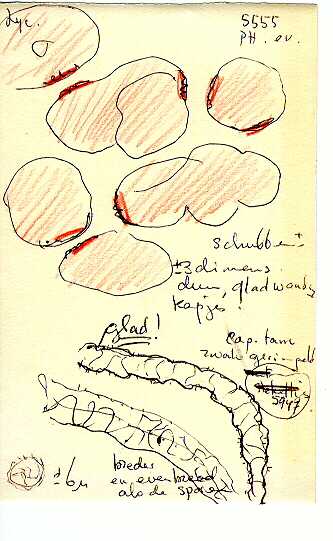 Lyc.
5555
PH. ov.
schubben ±
±3 dimens.
dun, gladwandig
kapjes!
glad!
Cap. tam
zwak gerimpeld
5947
± 6µ
breder
en evenbreed
als de sporen